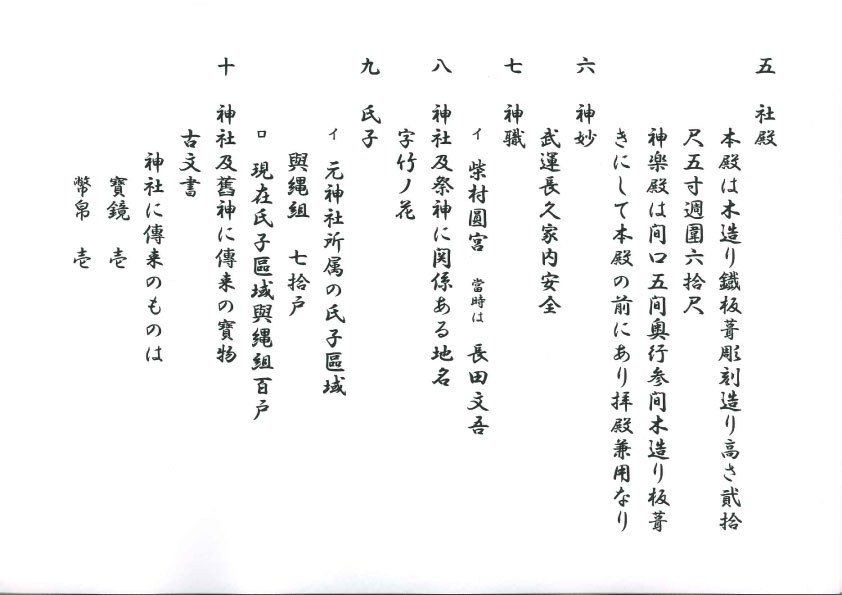 五 社殿
本殿は木造り鐵板葺彫刻造り高さ貮拾
尺五寸週圍六拾尺
神楽殿は间口五间奥行参间木造り板葺
きにして本殿の前にあり拝殿兼用なり
六 神妙
武運長久家内安全
七 神職
イ 柴村圓宮 當時は 長田文吾
八 神社及祭神に関係ある地名
字竹ノ花
九 氏子
イ 元神社所属の氏子區域
與縄組 七拾戸
ロ 現在氏子區域與縄組百戸
十 神社及舊神に傳来の寶物
古文書
神社に傳来のものは
寶鏡 壱
幣帛 壱